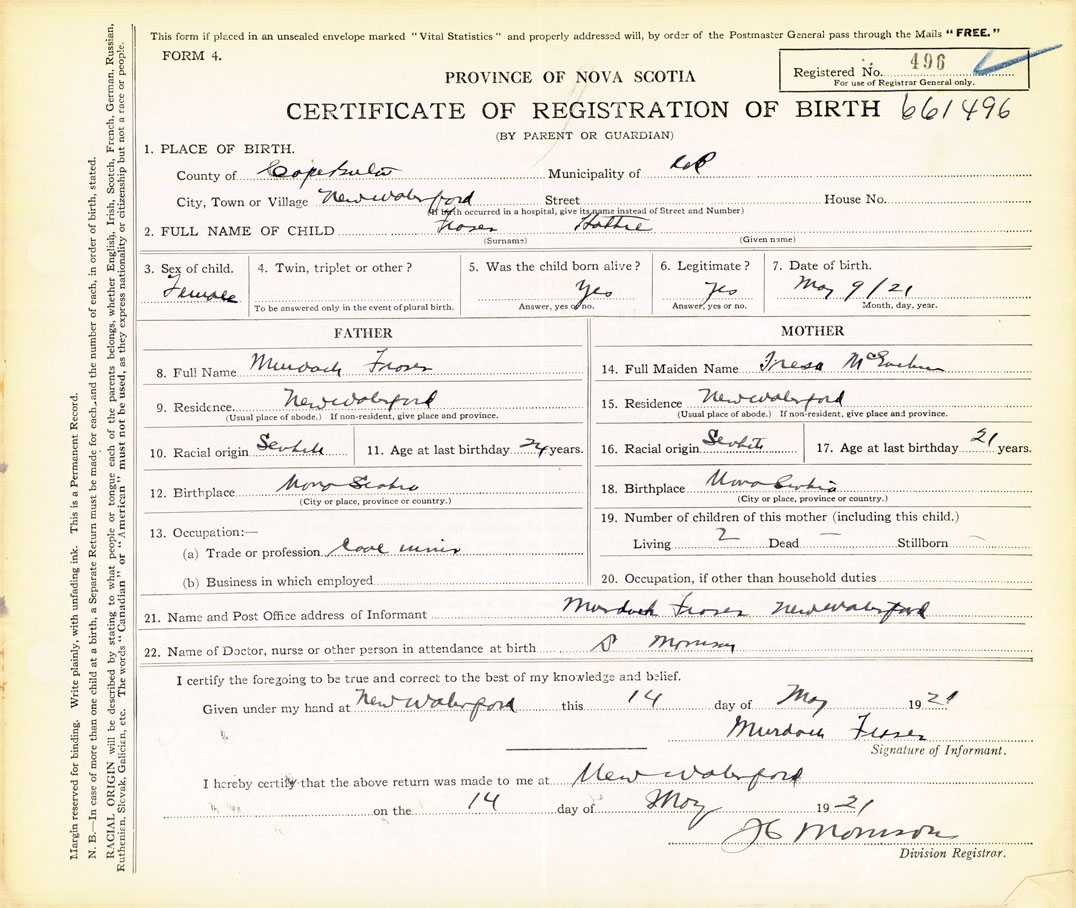 This form if placed in an unsealed envelope marked "Vital Statistics" and properly addressed will, by order of the Postmaster General pass through the Mails "FREE."
FORM 4.
Registered No. 496
For use of Registrar General only.
PROVINCE OF NOVA SCOTIA
CERTIFICATE OF REGISTRATION OF BIRTH 661496
(BY PARENT OR GUARDIAN)
1. PLACE OF BIRTH.
County of Municipality of
City, Town or Village New Waterford Street House No.
(If birth occurred in a hospital, give its name instead of Street and Number)
2. FULL NAME OF CHILD Fraser Hattie
(Surname) (Given name)
3. Sex of child. 4. Twin, triplet or other? 5. Was the child born alive? 6. Legitimate? 7. Date of birth.
Female Yes Yes May 9/21
To be answered only in the event of plural birth. Answer, yes or no. Answer, yes or no. Month, day, year.
FATHER MOTHER
8. Full Name Murdoch Fraser 14. Full Maiden Name
9. Residence New Waterford 15. Residence New Waterford
(Usual place of abode.) If non-resident, give place and province. (Usual place of abode.) If non-resident, give place and province.
10. Racial origin 11. Age at last birthday 24 years. 16. Racial origin 17. Age at last birthday 21 years.
12. Birthplace Nova Scotia 18. Birthplace Nova Scotia
(City or place, province or country.) (City or place, province or country.)
13. Occupation:— 19. Number of children of this mother (including this child.)
(a) Trade or profession Living 2 Dead — Stillborn —
(b) Business in which employed 20. Occupation, if other than household duties
21. Name and Post Office address of Informant Murdoch Fraser New Waterford
22. Name of Doctor, nurse or other person in attendance at birth
I certify the foregoing to be true and correct to the best of my knowledge and belief.
Given under my hand at New Waterford this 14 day of May 1921
Murdoch Fraser
Signature of Informant.
I hereby certify that the above return was made to me at New Waterford
on the 14 day of May 1921
Morrison
Division Registrar.
Margin reserved for binding. Write plainly, with unfading ink. This is a Permanent Record.
N. B.—In case of more than one child at a birth, a Separate Return must be made for each, and the number of each, in order of birth, stated.
RACIAL ORIGIN will be described by stating to what people or tongue each of the parents belongs, whether English, Irish, Scotch, French, German, Russian,
Ruthenian, Slovak, Galician, etc. The words "Canadian" or "American" must not be used, as they express nationality or citizenship but not a race or people.